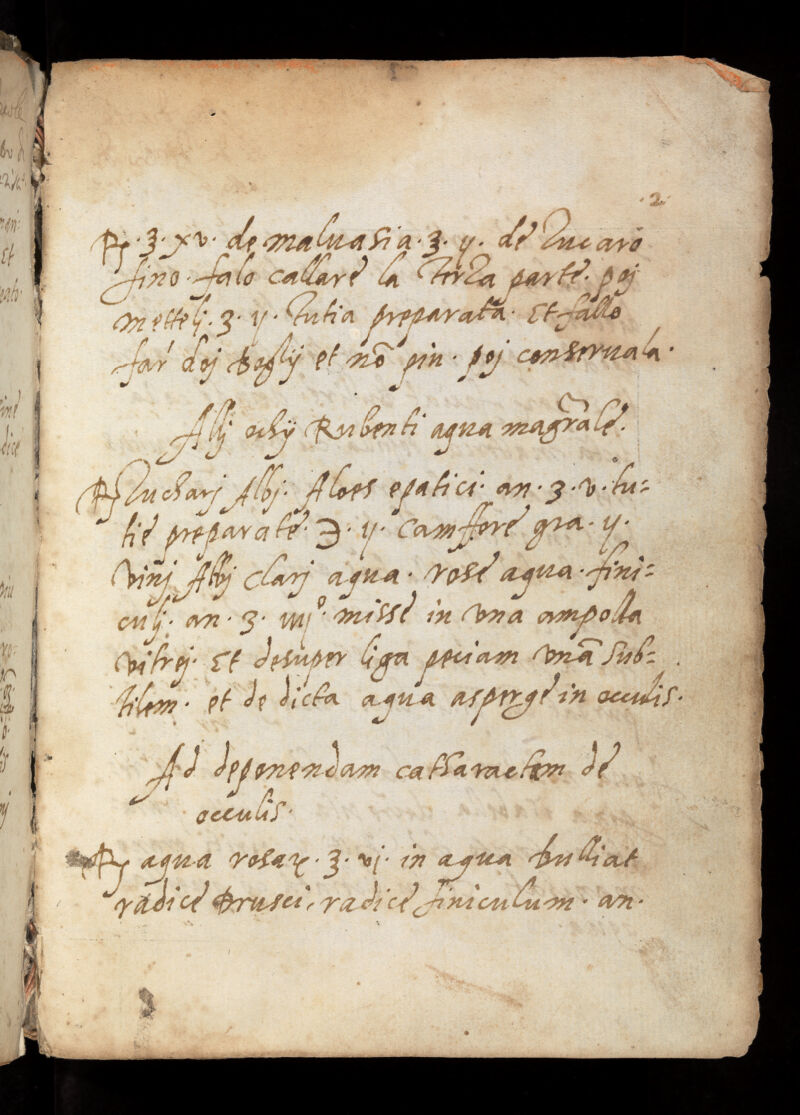 ·2·
℞. ʒ. xv. de maluasia. ʒ. ij. de zucaro
fino. falo callare la terza parte. poj
mettelj. ʒ. ij. tutia preparata. Et fallo
far doj boglij et nō piu. poj conseruala.
Allj ochij Rubenti aqua magr̄ale.
℞ zucharj Albj. Aloes epatici. an. ʒ. v. tu=
tie preparate. ℈. ij. Camffore gra. ij.
Vinj Albj clarj aqua. rose aqua. fini=
culj. an. ʒ. iiijº. misse in vna ampolla
vitrej. Et desuper liga peciam vnā sub=
tilem. et de dicta aqua asperge in occulis.
Ad deponendam catharactam de
occulis.
℞ aqua rosaꝝ. ʒ. vj. in aqua bulliat
radice Brusci, radice finiculum. an.